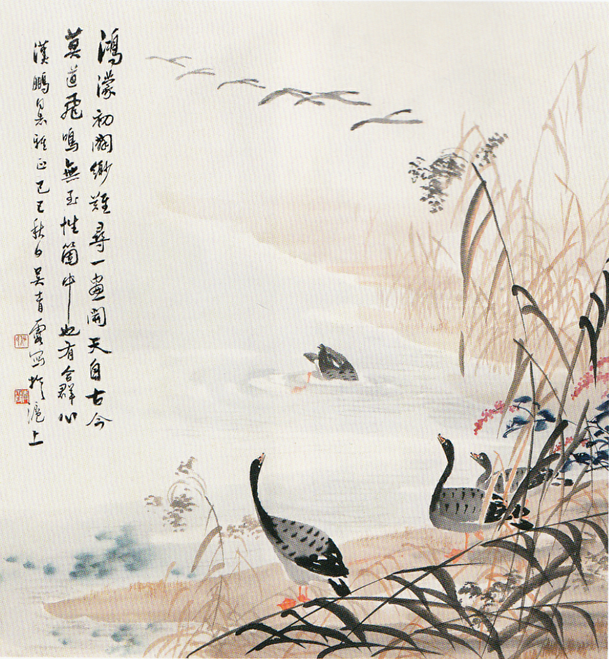 鴻濛初闢緲難尋一畫開天自古今
莫道飛鳴無至性箇中也有合群心
漢鵬雅正己巳秋日吳青霞寫於滬上